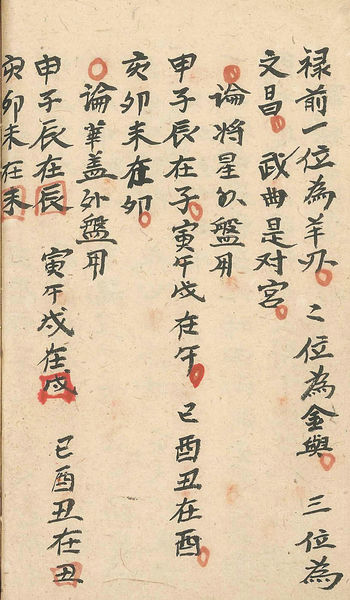 禄前一位為羊刃 二位為金輿 三位為
文昌 武曲是对宮
論将星外盤用
申子辰在子寅午戌在午 巳酉丑在酉
亥卯未在卯
論華盖外盤用
申子辰在辰 寅午戌在戌 巳酉丑在丑
亥卯未在未